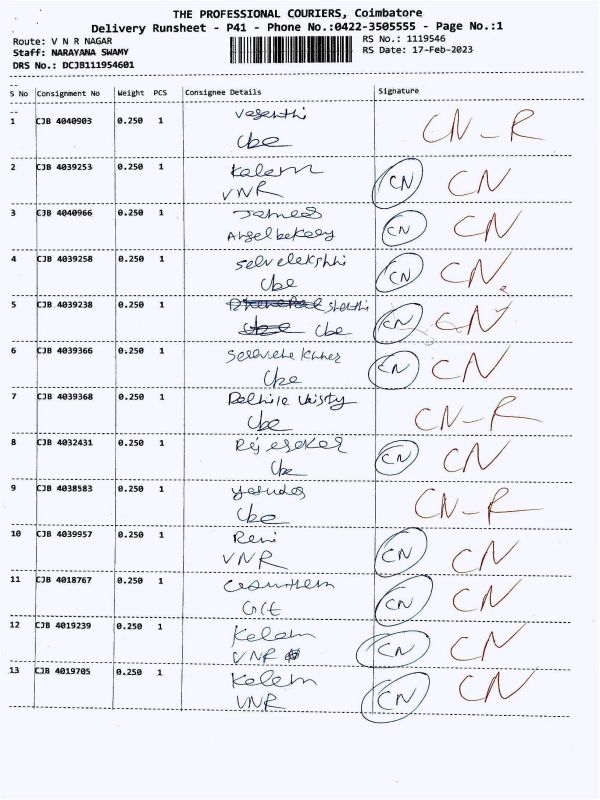 THE PROFESSIONAL COURIERS, Coimbatore
Delivery Runsheet - P41 - Phone No.:0422-3505555 - Page No.:1
Route: V N R NAGAR
RS No.: 1119546
Staff: NARAYANA SWAMY
RS Date: 17-Feb-2023
DRS No.: DCJB111954601
S No Consignment No Weight PCS Consignee Details Signature
1 CJB 4040903 0.250 1 Vasanthi CN-R
Cbe
2 CJB 4039253 0.250 1 Kalam CN CN
VNR
3 CJB 4040966 0.250 1 James CN CN
4 CJB 4039258 0.250 1 CN CN
Cbe
5 CJB 4039238 0.250 1 CN CN
Cbe
6 CJB 4039366 0.250 1 CN CN
Cbe
7 CJB 4039368 0.250 1 CN-R
Cbe
8 CJB 4032431 0.250 1 CN CN
Cbe
9 CJB 4038583 0.250 1 CN-R
Cbe
10 CJB 4039957 0.250 1 CN CN
VNR
11 CJB 4018767 0.250 1 CN CN
12 CJB 4019239 0.250 1 Kalam CN CN
VNR
13 CJB 4019705 0.250 1 Kalam CN CN
VNR